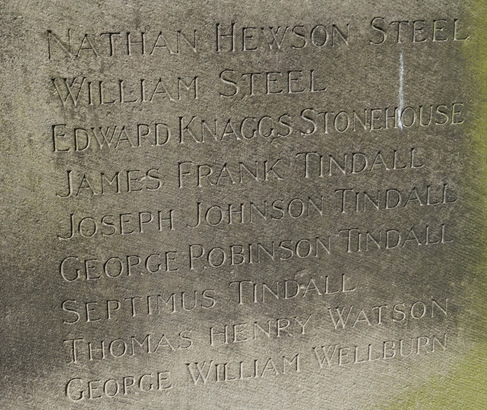 NATHAN HEWSON STEEL
WILLIAM STEEL
EDWARD KNAGGS STONEHOUSE
JAMES FRANK TINDALL
JOSEPH JOHNSON TINDALL
GEORGE ROBINSON TINDALL
SEPTIMUS TINDALL
THOMAS HENRY WATSON
GEORGE WILLIAM WELLBURN